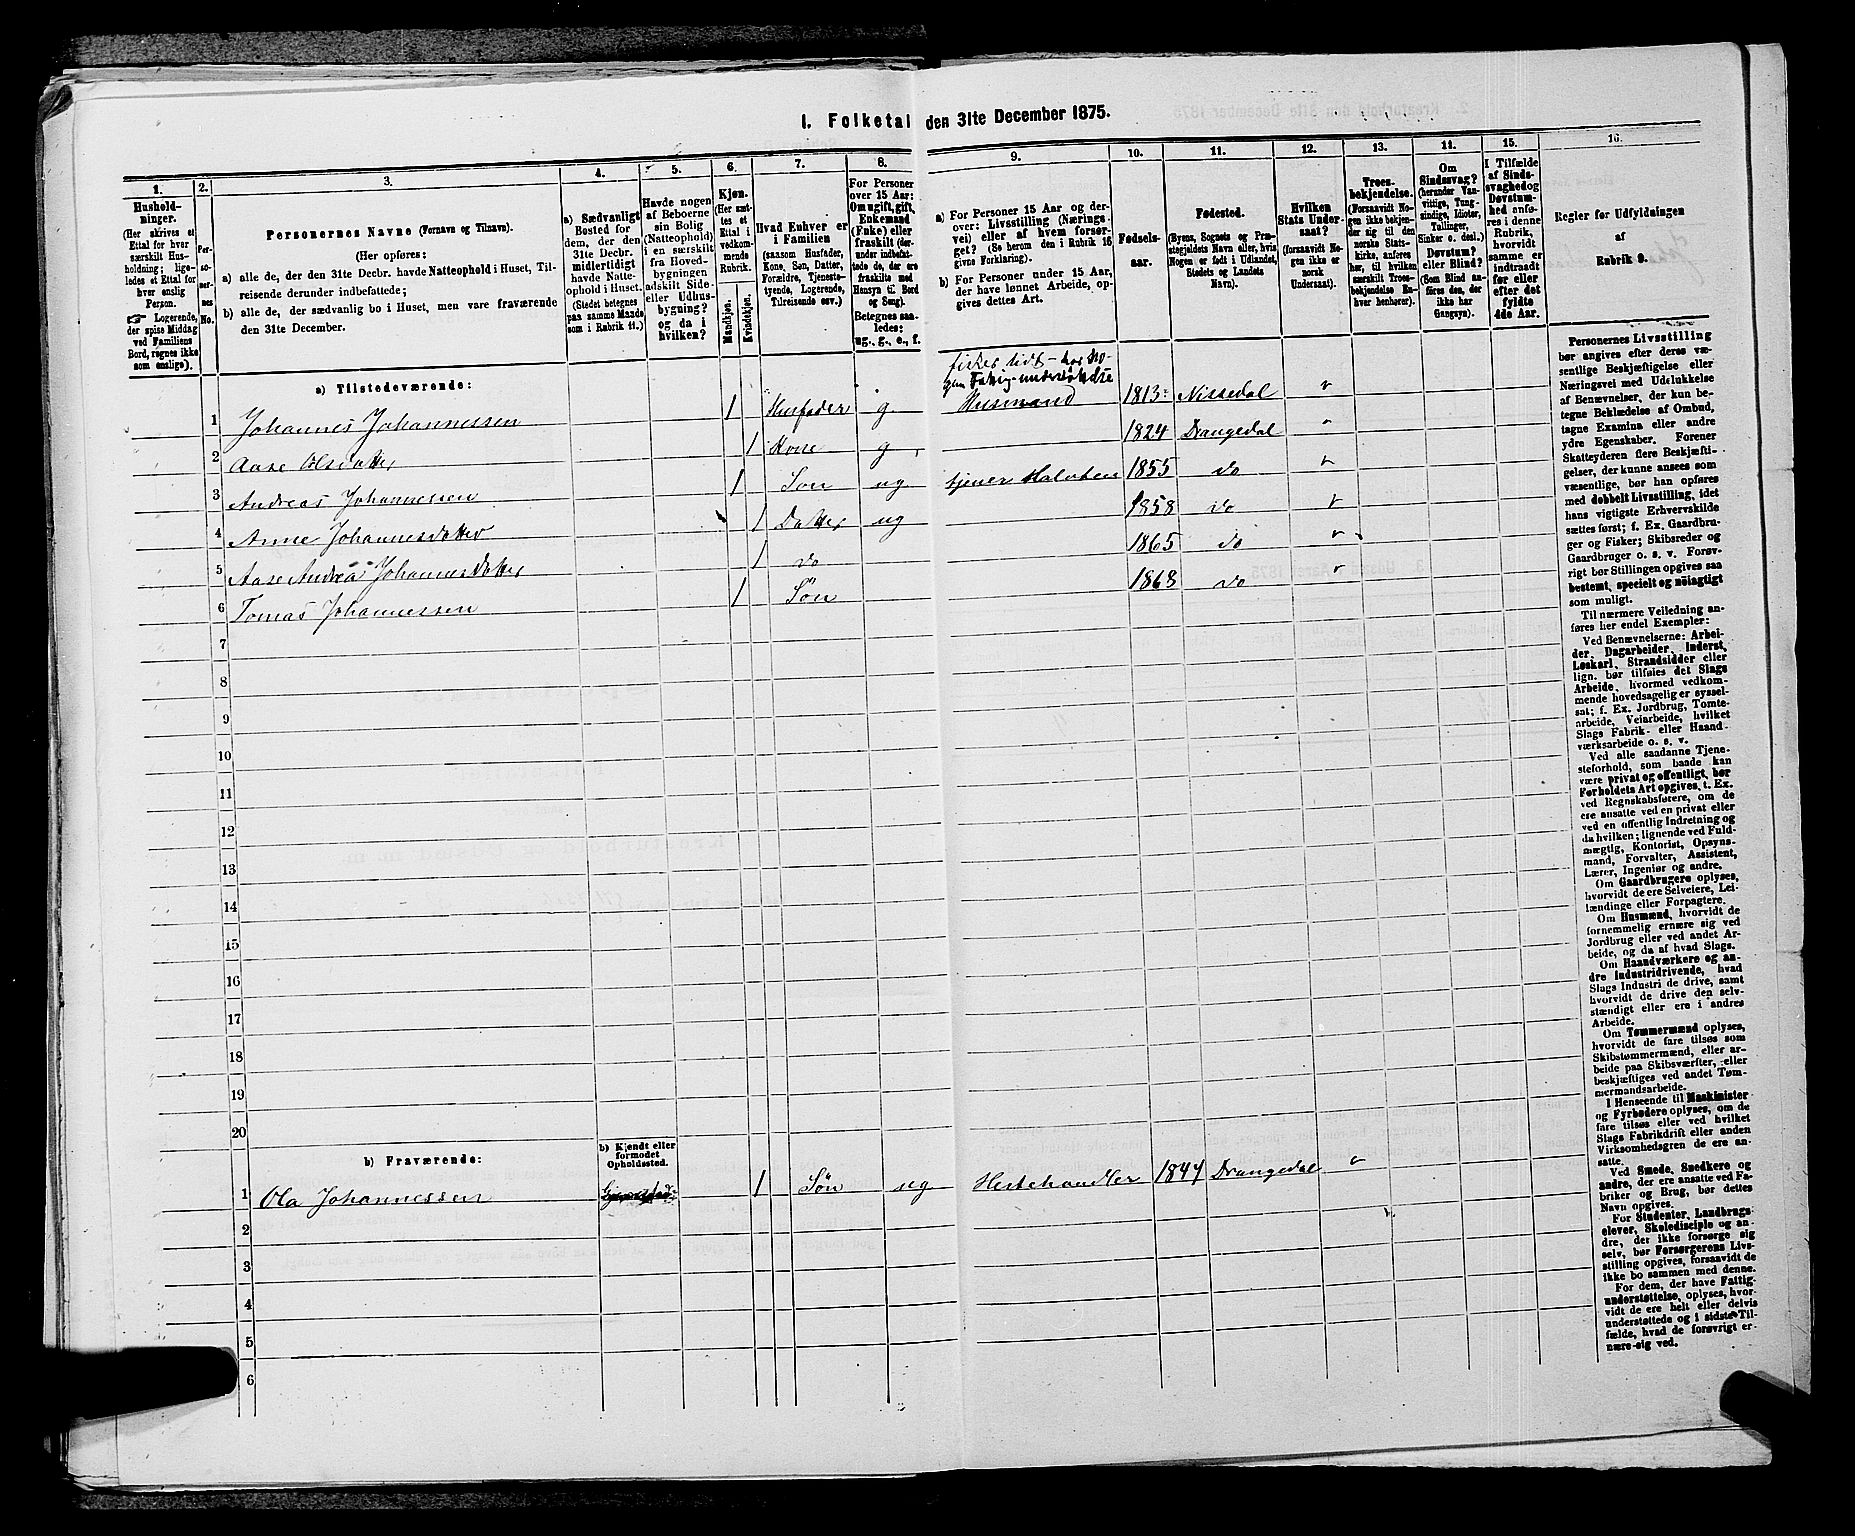 I. Folketal den 31te December 1875.
1. 2. 3. 4. 5. 6. 7. 8. 9. 10. 11. 12. 13. 14. 15. 16.
Hushold-
ninger.
(Her skrives et
Ettal for hver
særskilt Hus-
holdning; lige-
ledes et Ettal for
hver enslig
Person.
☞ Logerende,
der spise Middag
ved Familiens
Bord, regnes ikke
som enslige).
Per-
so-
ner-
nes
No.
Personernes Navne (Fornavn og Tilnavn).
(Her opføres:
a) alle de, der den 31te Decbr. havde Natteophold i Huset, Til-
reisende derunder indbefattede;
b) alle de, der sædvanlig bo i Huset, men vare fraværende
den 31te December.
a) Sædvanligt
Bosted for
dem, der den
31te Decbr.
midlertidigt
havde Natte-
ophold i Huset.
(Stedet betegnes
paa samme Maade
som i Rubrik 11.)
Havde nogen
af Beboerne
sin Bolig
(Natteophold)
i en særskilt
fra Hoved-
bygningen
adskilt Side-
eller Udhus-
bygning?
og da i
hvilken?
Kjøn.
(Her sæt-
tes et
Ettal i
vedkom-
mende
Rubrik.
Mandkjøn.
Kvindekjøn.
Hvad Enhver er
i Familien
(saasom Husfader,
Kone, Søn, Datter,
Forældre, Tjeneste-
tyende, Logerende,
Tilreisende osv.)
For Personer
over 15 Aar:
Om ugift, gift,
Enkemand
(Enke) eller
fraskilt (der-
under indbefat-
tede de, der ere
fraskilte med
Hensyn til Bord
og Seng).
Betegnes saa-
ledes:
ug., g., e., f.
a) For Personer 15 Aar og der-
over: Livsstilling (Nærings-
vei) eller af hvem forsør-
get? (Se herom den i Rubrik 16
givne Forklaring).
b) For Personer under 15 Aar,
der have lønnet Arbeide, op-
gives dettes Art.
Fødsels-
aar.
Fødested.
(Byens, Sognets og Præ-
stegjeldets Navn eller, hvis
Nogen er født i Udlandet,
Stedets og Landets
Navn).
Hvilken
Stats Under-
saat?
(forsaavidt No-
gen ikke er
norsk
Undersaat).
Troes-
bekjendelse.
(Forsaavidt No-
gen ikke bekjen-
der sig til den
norske Stats-
kirke, anføres
her, til hvilken
særskilt Troes-
bekjendelse En-
hver henhører).
Om
Sindssvag?
(herunder Van-
vittige, Tung-
sindige, Idioter,
Tullinger,
Sinker o. desl.)
Døvstum?
eller Blind?
(Som Blind an-
føres den, der
ikke har
Gangsyn).
I Tilfælde
af Sinds-
svaghed og
Døvstum-
hed anfø-
res i denne
Rubrik,
hvorvidt
samme er
indtraadt
før eller
efter det
fyldte
4de Aar.
Regler for Udfyldningen
af
Rubrik 9.
a) Tilstedeværende:
fisker lidt – har no-
gen Fattig-understøttelse
1 Johannes Johannessen 1 Husfader g Husmand 1813 Nissedal
2 Aase Olsdatter 1 Kone g 1824 Drangedal
3 Andreas Johannessen 1 Søn ug tjener Halvten 1855 do
4 Anne Johannesdatter 1 Datter ug 1858 do
5 Aase Andrea Johannesdatter 1 do 1865 do
6 Tomas Johannessen 1 Søn 1868 do
7
8
9
10
11
12
13
14
15
16
17
18
19
20
b) Fraværende:
b) Kjendt eller
formodet
Opholdssted.
1 Ola Johannessen 1 Søn ug Hestehandler 1847 Drangedal
2
3
4
5
6
Personernes Livsstilling
bør angives efter deres væ-
sentlige Beskjæftigelse eller
Næringsvei med Udelukkelse
af Benævnelser, der kun be-
tegne Beklædelse af Ombud,
tagne Examina eller andre
ydre Egenskaber. Forener
Skatteyderen flere Beskjæfti-
gelser, der kunne ansees som
væsentlige, bør han opføres
med dobbelt Livsstilling, idet
hans vigtigste Erhvervskilde
sættes først; f. Ex. Gaardbru-
ger og Fisker; Skibsreder og
Gaardbruger o. s. v. Forøv-
rigt bør Stillingen opgives saa
bestemt, specielt og nøiagtigt
som muligt.
Til nærmere Veiledning an-
føres her endel Exempler:
Ved Benævnelserne: Arbei-
der, Dagarbeider, Inderst,
Løskarl, Strandsidder eller
lign. bør tilføies det Slags
Arbeide, hvormed vedkom-
mende hovedsagelig er syssel-
sat; f. Ex. Jordbrug, Tomte-
arbeide, Veiarbeide, hvilket
Slags Fabrik- eller Haand-
værksarbeide o. s. v.
Ved alle saadanne Tjene-
steforhold, som baade kan
være privat og offentligt, bør
Forholdets Art opgives, t. Ex.
ved Regnskabsførere, om de
ere ansatte ved en privat eller
ved en offentlig Indretning og
da hvilken; lignende ved Fuld-
mægtig, Kontorist, Opsyns-
mand, Forvalter, Assistent,
Lærer, Ingeniør og andre.
Om Gaardbrugere oplyses,
hvorvidt de ere Selveiere, Lei-
lændinge eller Forpagtere.
Om Husmænd, hvorvidt de
fornemmelig ernære sig ved
Jordbrug eller ved andet Ar-
beide, og da af hvad Slags.
Om Haandværkere og an-
dre Industridrivende, hvad
Slags Industri de drive, samt
hvorvidt de drive den selv-
stændigt eller ere i andres
Arbeide.
Om Tømmermænd oplyses,
hvorvidt de fare tilsøs som
Skibstømmermænd, eller ar-
beide paa Skibsværfter, eller
beskjæftiges ved andet Tøm-
mermandsarbeide.
I Henseende til Maskinister
og Fyrbødere oplyses, om de
fare tilsøs eller ved hvilket
Slags Fabrikdrift eller anden
Virksomhedsgren de ere an-
satte.
Ved Smede, Snedkere og
andre, der ere ansatte ved Fa-
briker og Brug, bør dettes
Navn opgives.
For Studenter, Landbrugs-
elever, Skoledisciple og an-
dre, der ikke forsørge sig
selv, bør Forsørgerens Livs-
stilling opgives, forsaavidt de
ikke bo sammen med denne.
For dem, der have Fattig-
understøttelse, oplyses, hvor-
vidt de ere helt eller delvis
understøttede og i sidste Til-
fælde, hvad de forøvrigt er-
nære sig ved.